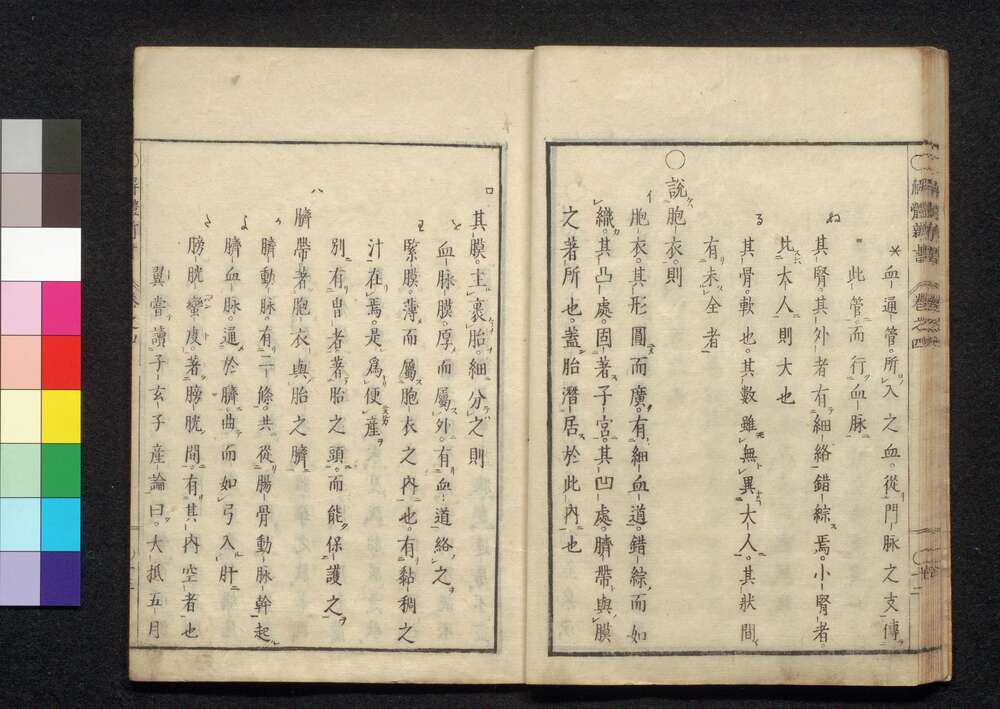 血通管。所入之血。從門脉之支傳
此管而行血脉
ぬ
其腎。其外者有細絡錯綜焉。小腎者。
比大人則大也
る
其骨軟也。其數雖無異大人。其狀間
有未全者
○說胞衣。則
イ
胞衣。其形圓而廣。有細血道。錯綜而如
織。其凸處。固著子宮。其凹處。臍帶與膜
之著所也。蓋胎潛居於此內也
ロ
其膜。主裹胎。細分之則
を
血脉膜。厚而屬外。有血道絡之
わ
緊膜。薄而屬胞衣之內也。有黏稠之
汁在焉。是爲便產
別有冑者。著胎之頭。而能保護之
ハ
臍帶著胞衣與胎之臍
か
臍動脉。有二條。共從腸骨動脉幹起
よ
臍血脉。通於臍。曲而如弓入肝
た
膀胱蠻度。著膀胱間。有其內空者也
翼嘗讀子玄子產論曰。大抵五月
卷之四